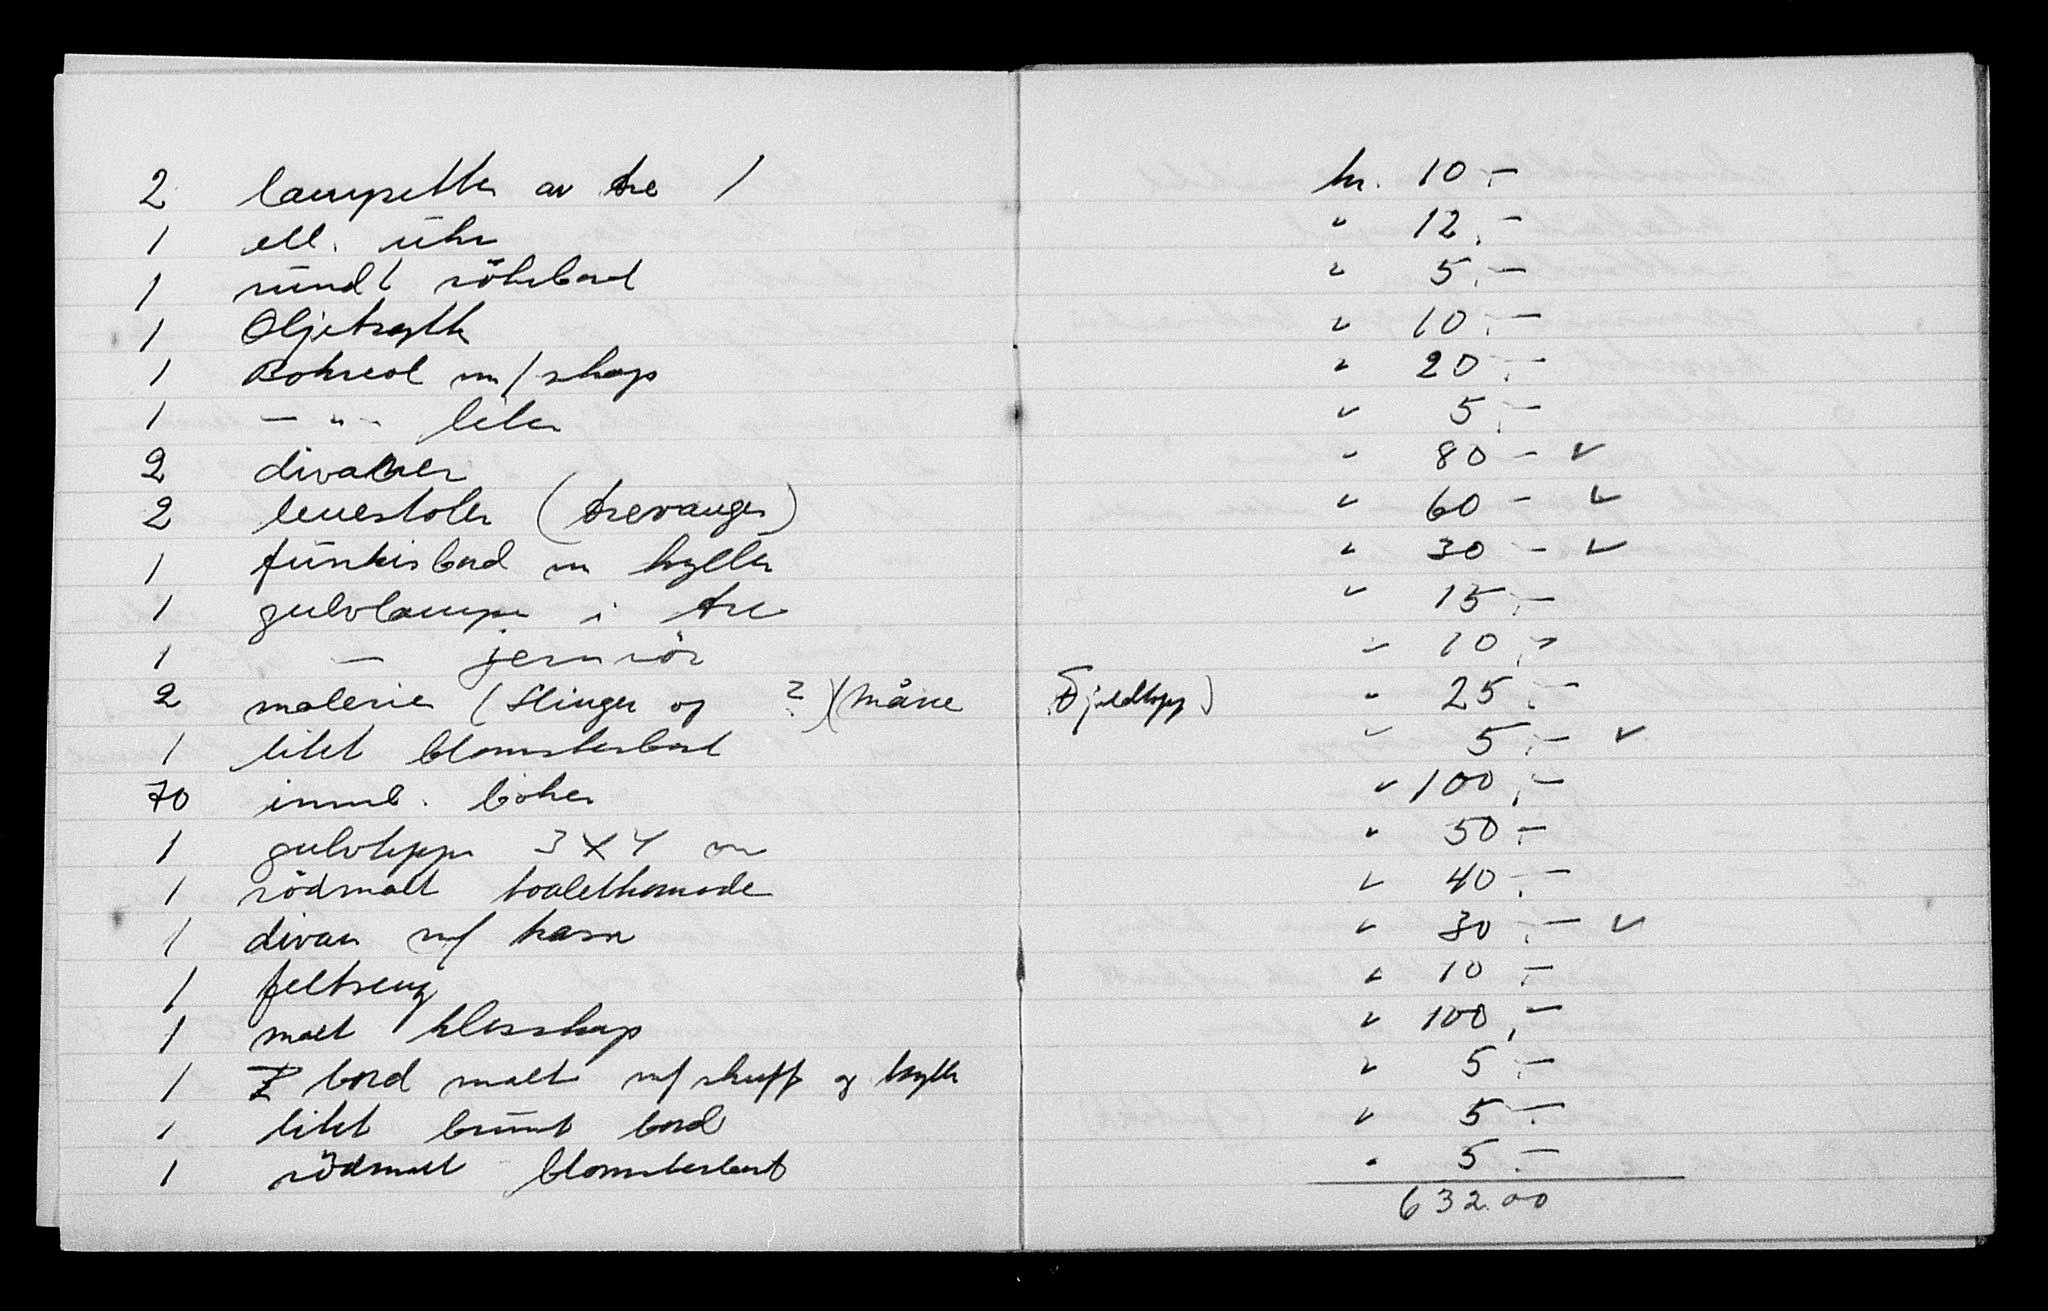 2 lampetter av tre / kr. 10.-
1 ell. uhr " 12.-
1 rundt rökebord " 5.-
1 Oljetrykk " 10.-
1 Bokreol m/skap " 20.-
1 - " - liten " 5.-
2 divaner " 80 - ✓
2 lenestoler (trevanger) " 60 - ✓
1 funkisbord m hyller " 30 - ✓
1 gulvlampe i tre " 15.-
1 - jernrör " 10.-
2 malerier (Slinger og ?) (Måne Fjeldtopp) " 25.-
1 litet blomsterbord " 5.- ✓
70 innb. böker " 100.-
1 gulvteppe 3 X 4 m " 50.-
1 rödmalt toaletkomode " 40.-
1 divan m/ kasse " 30.- ✓
1 feltseng " 10.-
1 malt klesskap " 100.-
1 bord malt m/skuff og hylle " 5.-
1 litet brunt bord " 5.-
1 rödmalt blomsterbord " 5.-
632.00